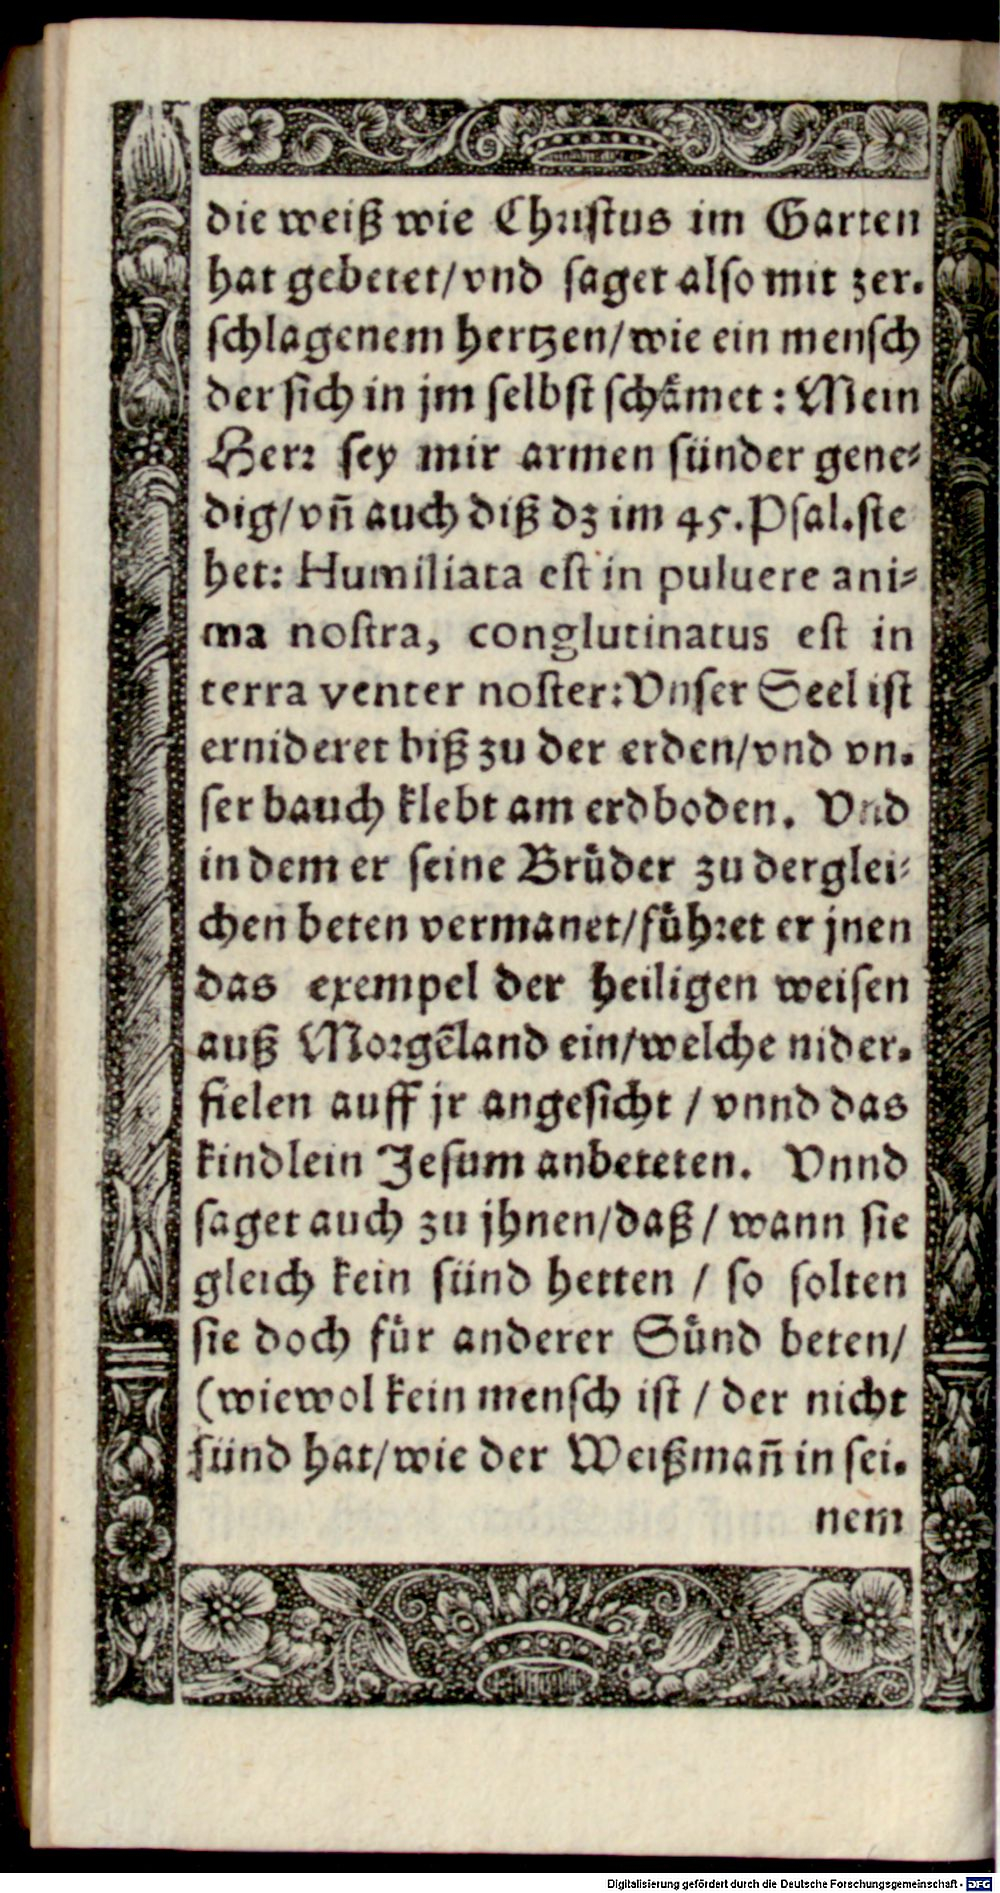 die weiß wie Christus im Garten
hat gebetet/vnd saget also mit zer-
schlagenem hertzen/wie ein mensch
der sich in jm selbst schåmet: Mein
Herr sey mir armen sünder gene-
dig/vn̄ auch diß dz im 45. Psal. ste
het: Humiliata est in puluere ani-
ma nostra, conglutinatus est in
terra venter noster: Vnser Seel ist
ernideret biß zu der erden/vnd vn-
ser bauch klebt am erdboden. Vnd
in dem er seine Brůder zu derglei-
chen beten vermanet/führet er jnen
das exempel der heiligen weisen
auß Morgēland ein/welche nider-
fielen auff jr angesicht / vnnd das
kindlein Jesum anbeteten. Vnnd
saget auch zu jhnen/daß / wann sie
gleich kein sünd hetten / so solten
sie doch für anderer Sünd beten/
(wiewol kein mensch ist / der nicht
sünd hat/wie der Weißman̄ in sei-
nem
Digitalisierung gefördert durch die Deutsche Forschungsgemeinschaft - DFG